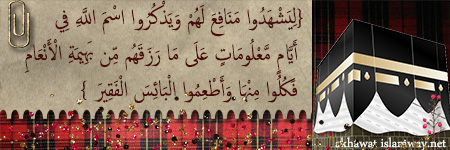 {لِيَشْهَدُوا مَنَافِعَ لَهُمْ وَيَذْكُرُوا اسْمَ اللَّهِ فِي
أَيَّامٍ مَّعْلُومَاتٍ عَلَى مَا رَزَقَهُم مِّن بَهِيمَةِ الْأَنْعَامِ
فَكُلُوا مِنْهَا وَأَطْعِمُوا الْبَائِسَ الْفَقِيرَ }
akhawat.islamway.net